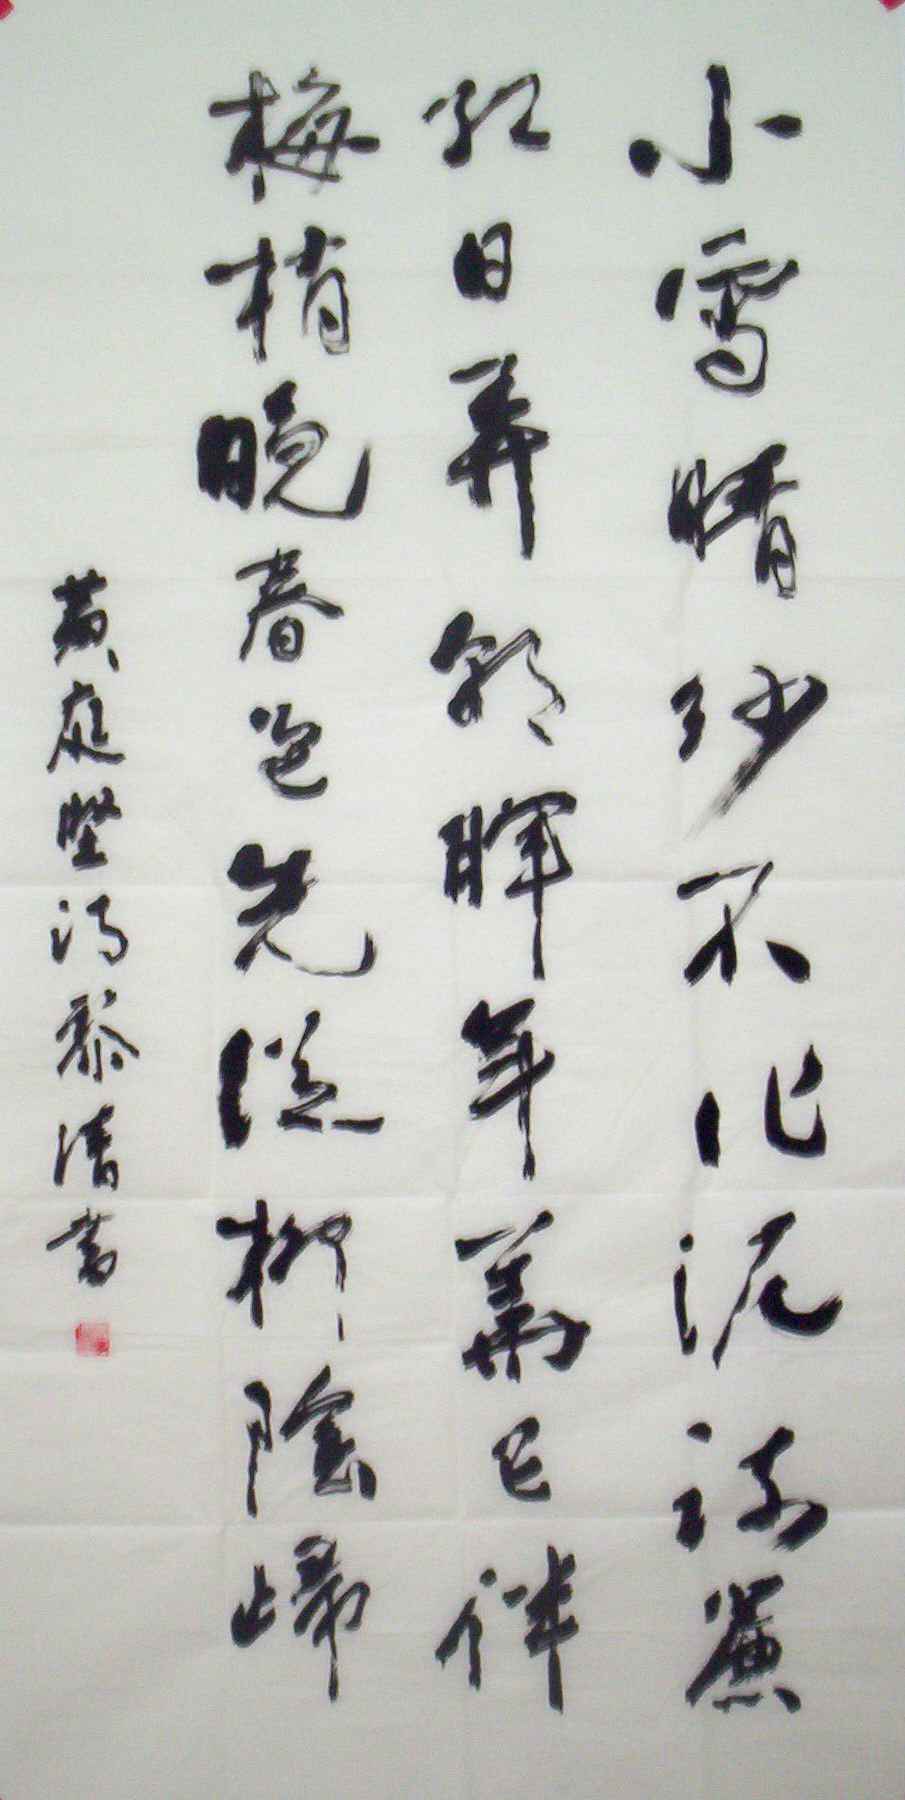 小雪晴沙不作泥疏簾
紅日弄朝暉年華已伴
梅梢晚春色先從柳陰歸
黃庭堅詩黎清書